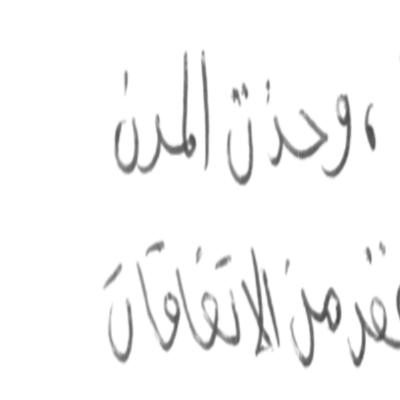 ، وحذت المدن
عقد من الاتفاقات